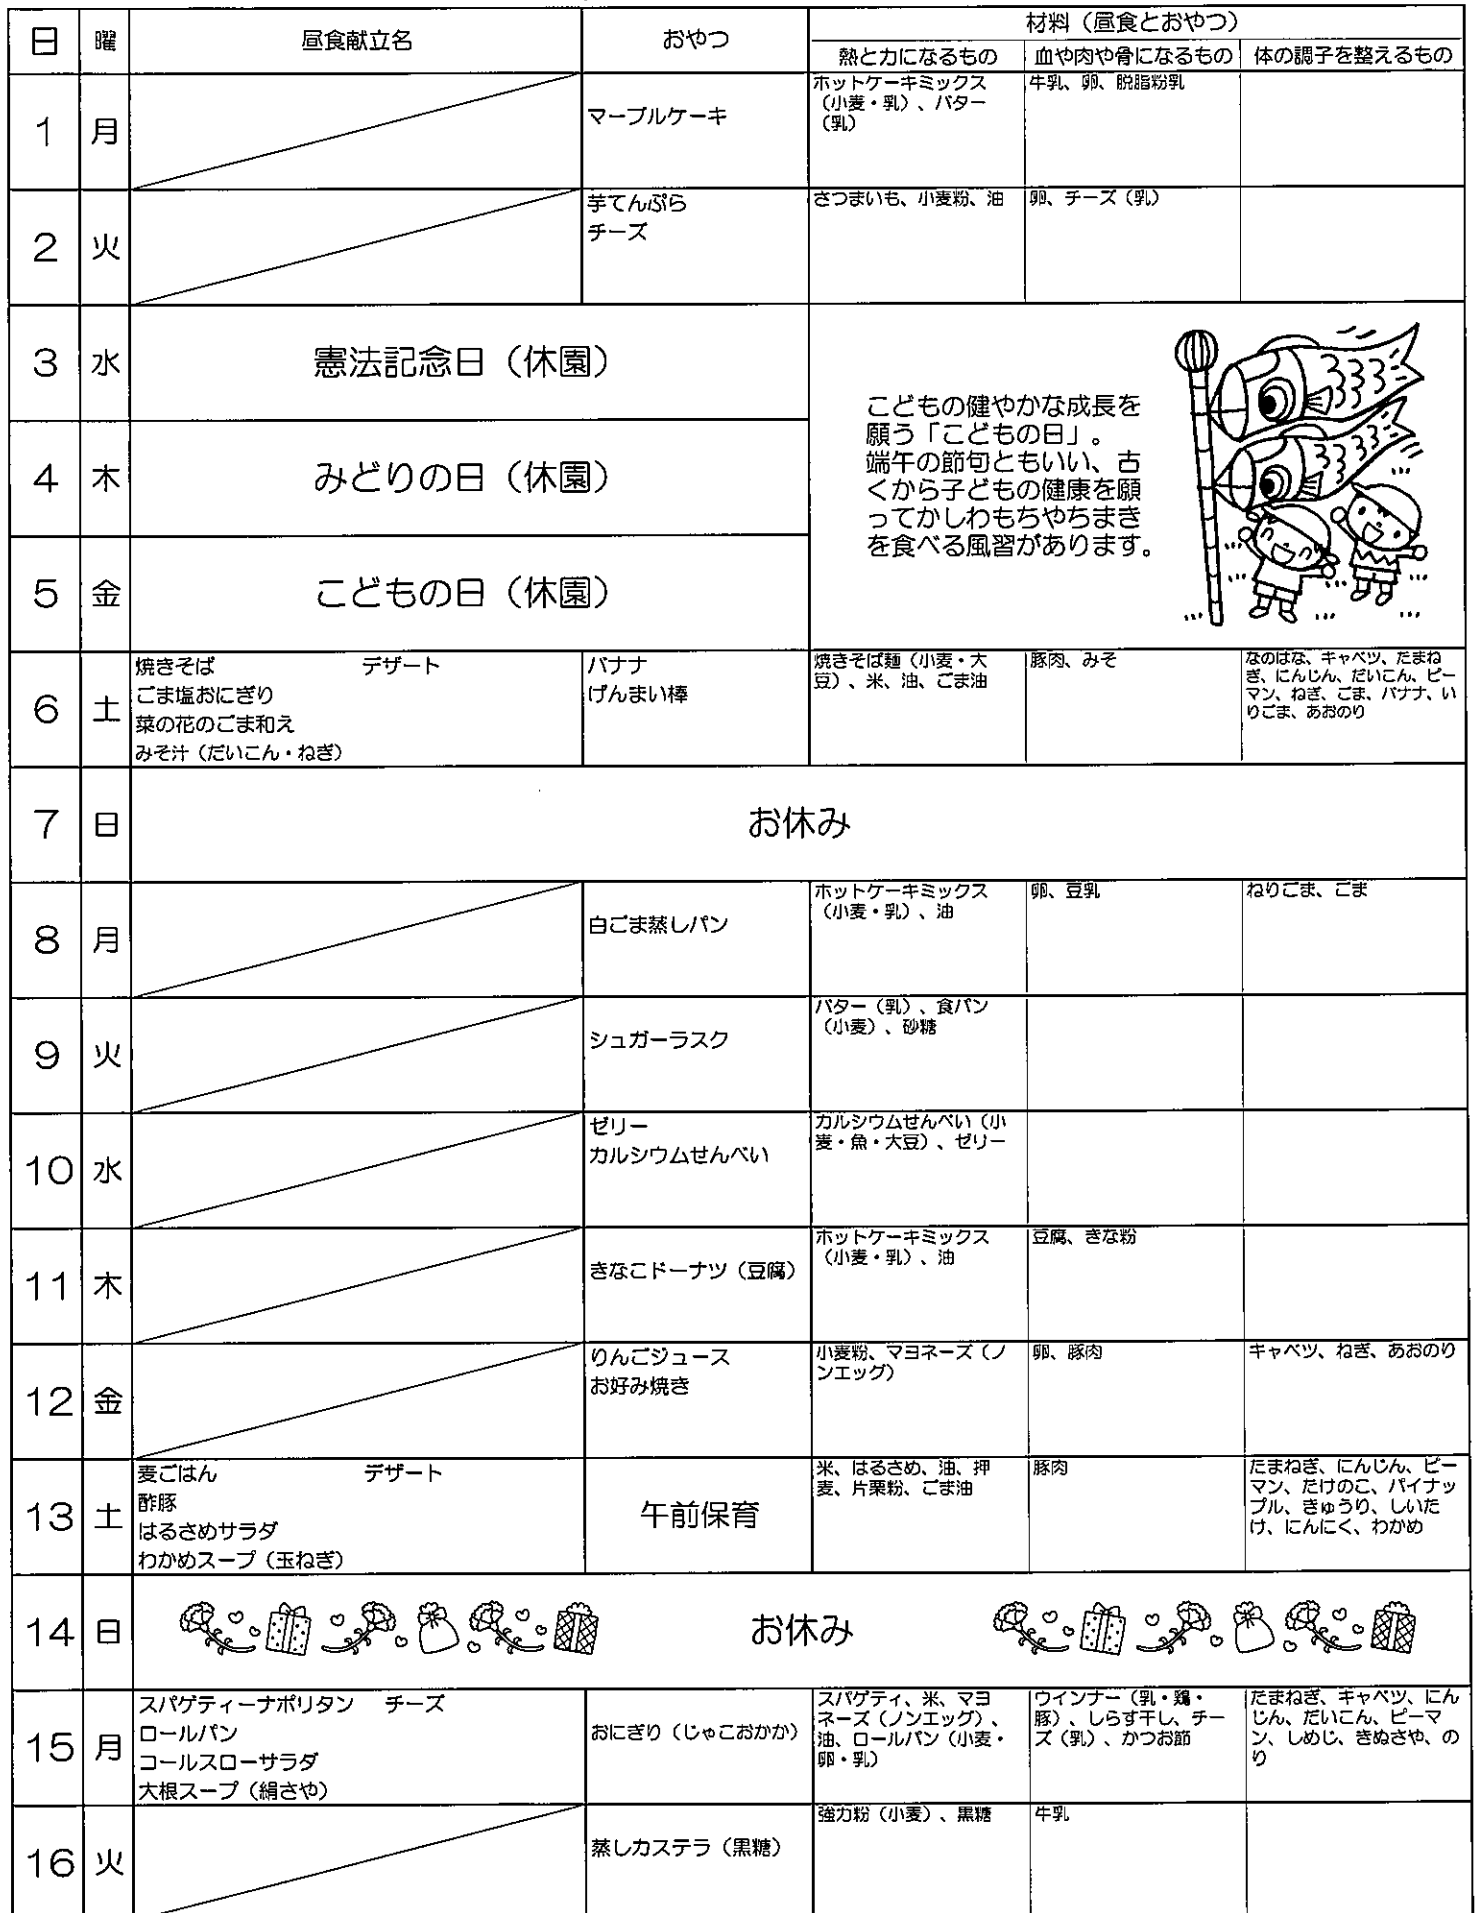 日 曜 昼食献立名 おやつ 材料（昼食とおやつ）
熱と力になるもの 血や肉や骨になるもの 体の調子を整えるもの
1 月 マーブルケーキ
ホットケーキミックス
（小麦・乳）、バター
（乳）
牛乳、卵、脱脂粉乳
2 火
芋てんぷら
チーズ
さつまいも、小麦粉、油
卵、チーズ（乳）
3 水 憲法記念日（休園）
4 木 みどりの日（休園）
5 金 こどもの日（休園）
こどもの健やかな成長を
願う「こどもの日」。
端午の節句ともいい、古
くから子どもの健康を願
ってかしわもちやちまき
を食べる風習があります。
6 土
焼きそば デザート
ごま塩おにぎり
菜の花のごま和え
みそ汁（だいこん・ねぎ）
バナナ
げんまい棒
焼きそば麺（小麦・大
豆）、米、油、ごま油
豚肉、みそ
なのはな、キャベツ、たまね
ぎ、にんじん、だいこん、ピー
マン、ねぎ、ごま、バナナ、い
りごま、あおのり
7 日 お休み
8 月 白ごま蒸しパン
ホットケーキミックス
（小麦・乳）、油
卵、豆乳
ねりごま、ごま
9 火 シュガーラスク
バター（乳）、食パン
（小麦）、砂糖
10 水
ゼリー
カルシウムせんべい
カルシウムせんべい（小
麦・魚・大豆）、ゼリー
11 木 きなこドーナツ（豆腐）
ホットケーキミックス
（小麦・乳）、油
豆腐、きな粉
12 金
りんごジュース
お好み焼き
小麦粉、マヨネーズ（ノ
ンエッグ）
卵、豚肉
キャベツ、ねぎ、あおのり
13 土
麦ごはん デザート
酢豚
はるさめサラダ
わかめスープ（玉ねぎ）
午前保育
米、はるさめ、油、押
麦、片栗粉、ごま油
豚肉
たまねぎ、にんじん、ピー
マン、たけのこ、パイナッ
プル、きゅうり、しいた
け、にんにく、わかめ
14 日 お休み
15 月
スパゲティーナポリタン チーズ
ロールパン
コールスローサラダ
大根スープ（絹さや）
おにぎり（じゃこおかか）
スパゲティ、米、マヨ
ネーズ（ノンエッグ）、
油、ロールパン（小麦・
卵・乳）
ウインナー（乳・鶏・
豚）、しらす干し、チー
ズ（乳）、かつお節
たまねぎ、キャベツ、にん
じん、だいこん、ピーマ
ン、しめじ、きぬさや、の
り
16 火 蒸しカステラ（黒糖）
強力粉（小麦）、黒糖
牛乳